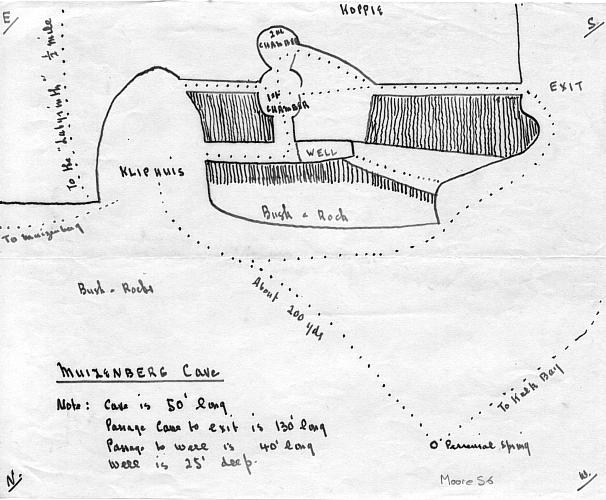 E
KOPPIE
S.
2ND CHAMBER
To the "Labyrinth" ½ mile
1ST CHAMBER
EXIT
WELL
KLIPHUIS
Bush & Rock
To Muizenberg
Bush & Rocks
About 200 yds
MUIZENBERG CAVE
Note: Cave is 50' long
Passage Cave to exit is 130' long
Passage to well is 40' long
Well is 25' deep.
To Kalk Bay
O' Perennial Spring
Moore 56
N.
W.